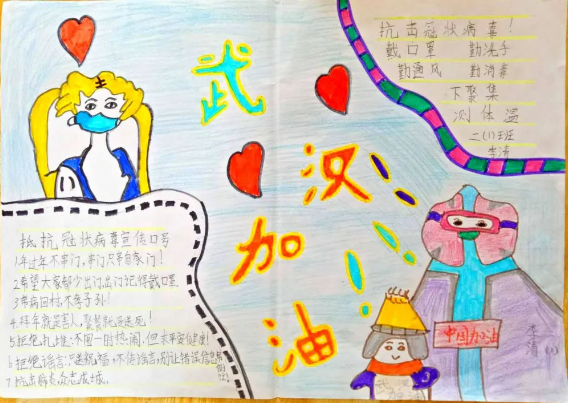 抗击冠状病毒!
戴口罩 勤洗手
勤通风 勤消毒
不聚集
测体温
二(1)班
李清
武
汉
加
油
!!!
抵抗冠状病毒宣传口号
1.年过年不串门,串门只串自家门!
2.希望大家都少出门,出门记得戴口罩
3.带病回村,不孝子孙!
4.拜年就是害人,聚餐就是送死!
5.拒绝扎堆:不图一时热闹,但求平安健康!
6.拒绝谣言:不造谣,不传谣,别让错误信息
7.抗击病毒众志成城。
中国加油
李清